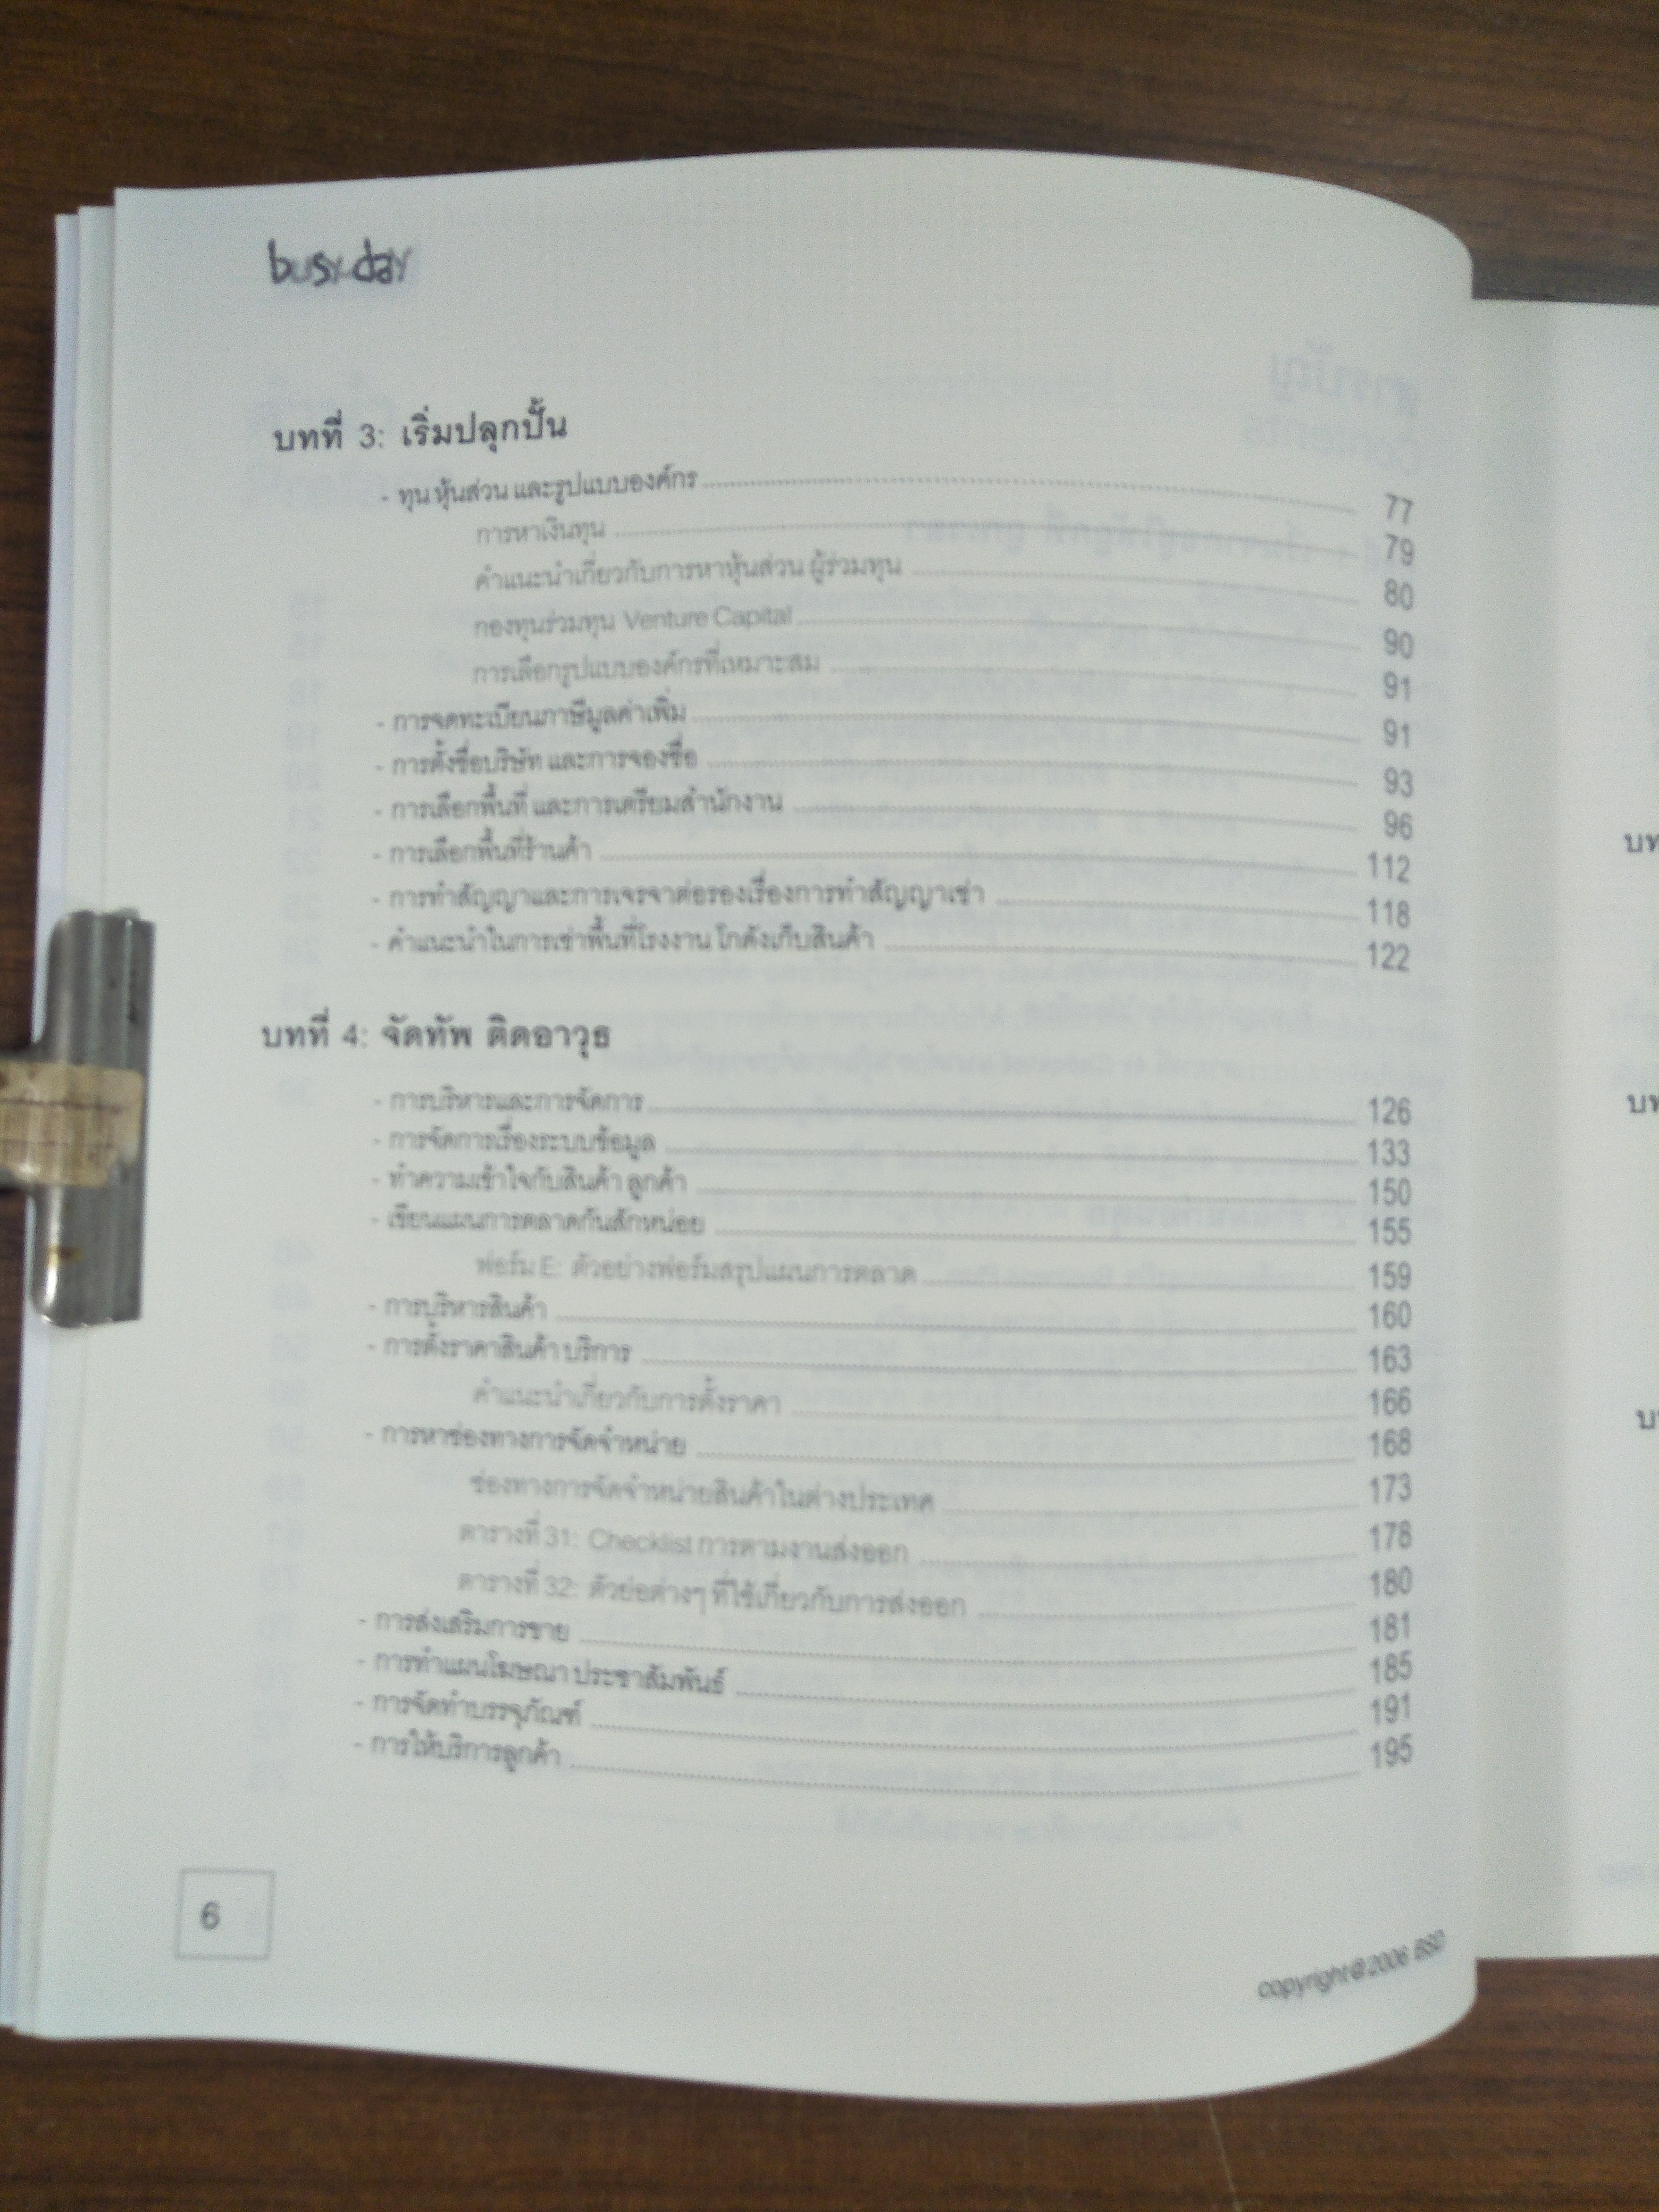 busy-day
บทที่ 3: เริ่มปลุกปั้น
- ทุน หุ้นส่วน และรูปแบบองค์กร 77
การหาเงินทุน 79
คำแนะนำเกี่ยวกับการหาหุ้นส่วน ผู้ร่วมทุน 80
กองทุนร่วมทุน Venture Capital 90
การเลือกรูปแบบองค์กรที่เหมาะสม 91
- การจดทะเบียนภาษีมูลค่าเพิ่ม 91
- การตั้งชื่อบริษัท และการจองชื่อ 93
- การเลือกพื้นที่ และการเตรียมสำนักงาน 96
- การเลือกพื้นที่ร้านค้า 112
- การทำสัญญาและการเจรจาต่อรองเรื่องการทำสัญญาเช่า 118
- คำแนะนำในการเช่าพื้นที่โรงงาน โกดังเก็บสินค้า 122
บทที่ 4: จัดทัพ ติดอาวุธ
- การบริหารและการจัดการ 126
- การจัดการเรื่องระบบข้อมูล 133
- ทำความเข้าใจกับสินค้า ลูกค้า 150
- เขียนแผนการตลาดกันสักหน่อย 155
ฟอร์ม E: ตัวอย่างฟอร์มสรุปแผนการตลาด 159
- การบริหารสินค้า 160
- การตั้งราคาสินค้า บริการ 163
คำแนะนำเกี่ยวกับการตั้งราคา 166
- การหาช่องทางการจัดจำหน่าย 168
ช่องทางการจัดจำหน่ายสินค้าในต่างประเทศ 173
ตารางที่ 31: Checklist การตามงานส่งออก 178
ตารางที่ 32: ตัวย่อต่างๆ ที่ใช้เกี่ยวกับการส่งออก 180
- การส่งเสริมการขาย 181
- การทำแผนโฆษณา ประชาสัมพันธ์ 185
- การจัดทำบรรจุภัณฑ์ 191
- การให้บริการลูกค้า 195
6
copyright@2006 BSD